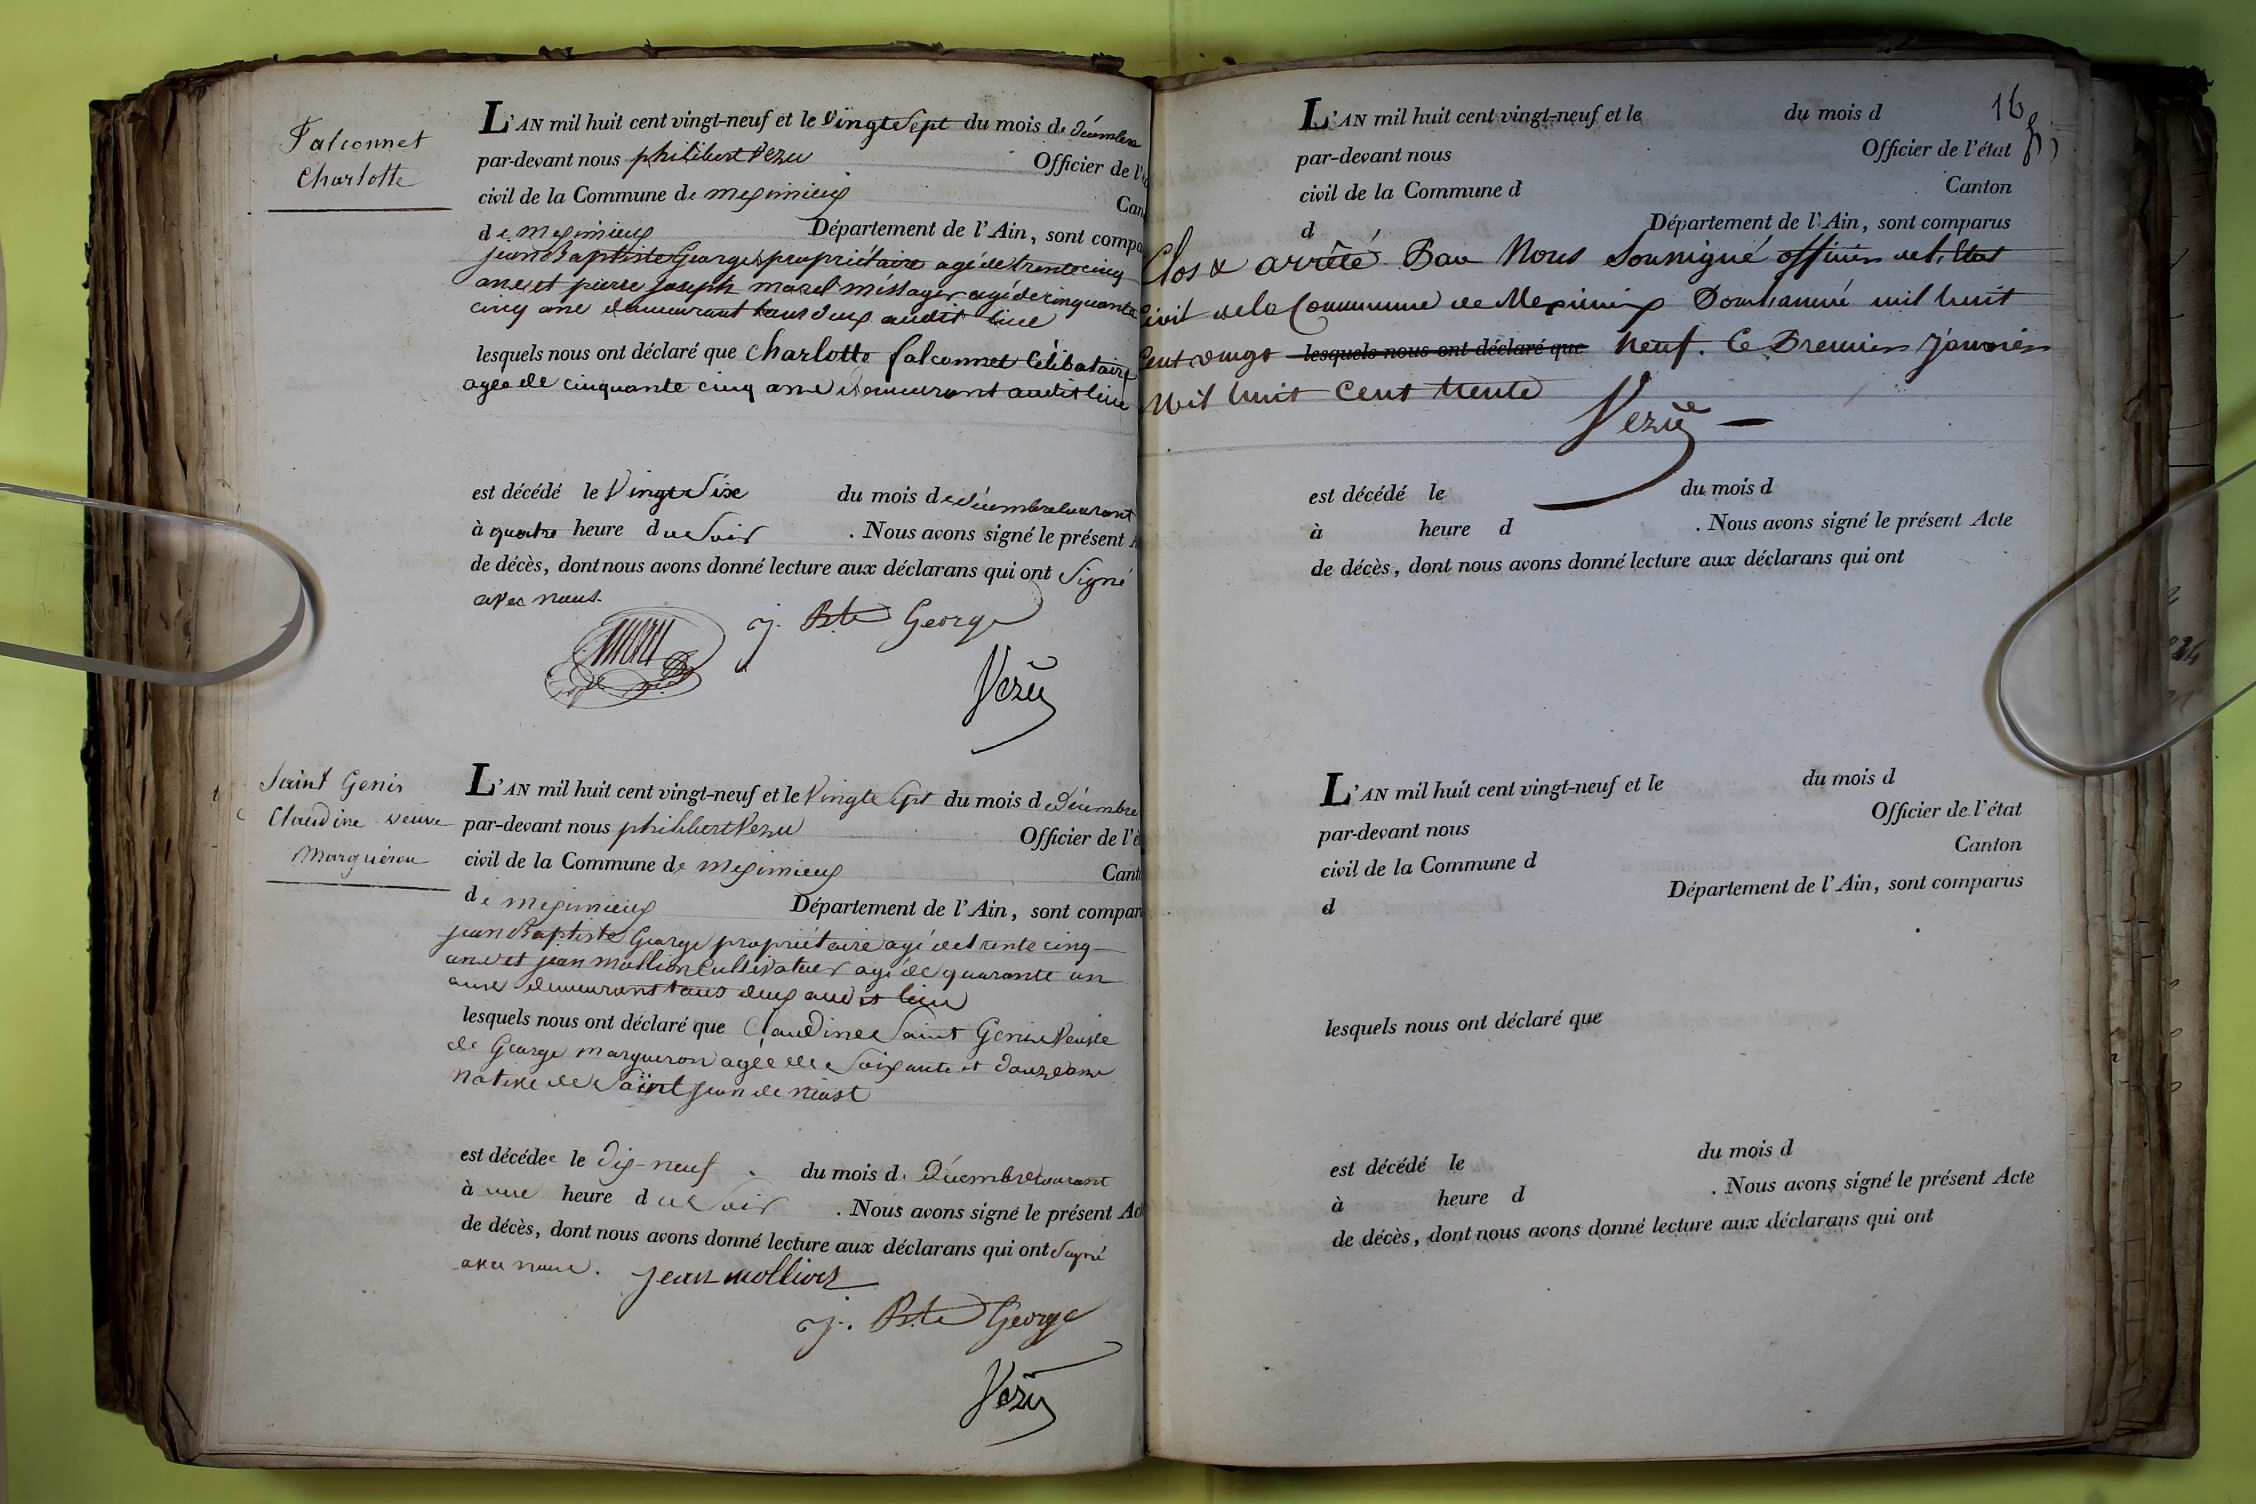 Falconnet
Charlotte
L'AN mil huit cent vingt-neuf et le Vingt Sept du mois de décembre
par-devant nous philibert Vezu Officier de l'é
civil de la Commune de meximieux Can
de meximieux Département de l'Ain, sont compa
jean Baptiste George propriétaire agé de trente cinq
ans et pierre joseph mazel messager agé de cinquante
cinq ans demeurant tous deux audit lieu
lesquels nous ont déclaré que Charlotte falconnet Célibataire
agée de cinquante cinq ans demeurant audit lieu
est décédé le Vingt Six du mois de décembre courant
à quatre heure du Soir . Nous avons signé le présent A
de décès, dont nous avons donné lecture aux déclarans qui ont Signé
avec nous.
j. Bte George
Vezu
Saint Genis
Claudine veuve
Marguéron
L'AN mil huit cent vingt-neuf et le Vingt Sept du mois d décembre
par-devant nous philibert Vezu Officier de l'é
civil de la Commune de meximieux Cant
de meximieux Département de l'Ain, sont compar
jean Baptiste George propriétaire agé de trente cinq
ans et jean mollion Cultivateur agé de quarante un
ans demeurant tous deux audit lieu
lesquels nous ont déclaré que Claudine Saint Genis Veuve
de George margueron agée de Soixante et douze ans
native de Saint jean de niost
est décédée le dix-neuf du mois d. Décembre courant
à une heure du Soir . Nous avons signé le présent Act
de décès, dont nous avons donné lecture aux déclarans qui ont Signé
avec nous. jean mollion
j. Bte George
Vezu
16
L'AN mil huit cent vingt-neuf et le du mois d
par-devant nous Officier de l'état
civil de la Commune d Canton
d Département de l'Ain, sont comparus
Clos & arrêté Par Nous Soussigné officier de l'état
Civil de la Commune de Meximieux Pour l'année mil huit
Cent vingt lesquels nous ont déclaré que Neuf. Ce Premier Janvier
Mil huit Cent trente
Vezu
est décédé le du mois d
à heure d . Nous avons signé le présent Acte
de décès, dont nous avons donné lecture aux déclarans qui ont
L'AN mil huit cent vingt-neuf et le du mois d
par-devant nous Officier de l'état
civil de la Commune d Canton
d Département de l'Ain, sont comparus
lesquels nous ont déclaré que
est décédé le du mois d
à heure d . Nous avons signé le présent Acte
de décès, dont nous avons donné lecture aux déclarans qui ont